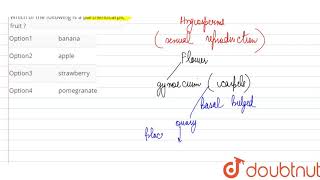 Which of the following is a parthenocarpic
fruit ?
Option1 banana
Option2 apple
Option3 strawberry
Option4 pomegranate
(sexual reproduction)
Flower
gynoecium (carpels)
Basal bulged
doubtnut